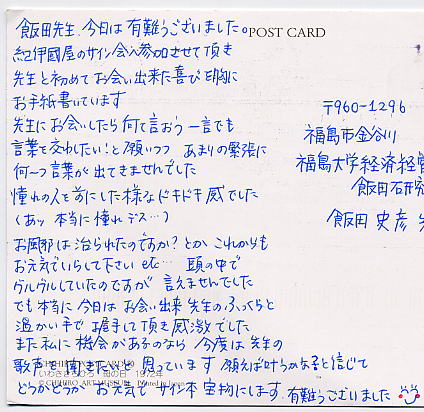 飯田先生、今日は有難うございました。
POST CARD
紀伊國屋のサイン会へ参加させて頂き
先生と初めてお会い出来た喜びを胸に
お手紙書いています
先生にお会いしたら何て言おう 一言でも
言葉を交わしたい!と願いつつ あまりの緊張に
何一つ言葉が出てきませんでした
憧れの人を前にした様なドキドキ感でした
(あッ 本当に憧れデス…)
お風邪は治られたのですか?とか これからも
お元気でいらして下さい etc… 頭の中で
グルグルしていたのですが 言えませんでした
でも本当に 今日は お会い出来 先生の ふっくらと
温かい手で 握手して頂き 感激でした
また 私に 機会があるのなら 今度は 先生の
歌声を 聞きたいと 思っています 願えば叶うかな?と信じて
どうかどうか お元気で サイン本 宝物にします。有難うございました
〒960-1296
福島市金谷川
福島大学経済経営
飯田研究
飯田 史彦
いわさきちひろ 1972年
© CHIHIRO ART MUSEUM Printed in Japan